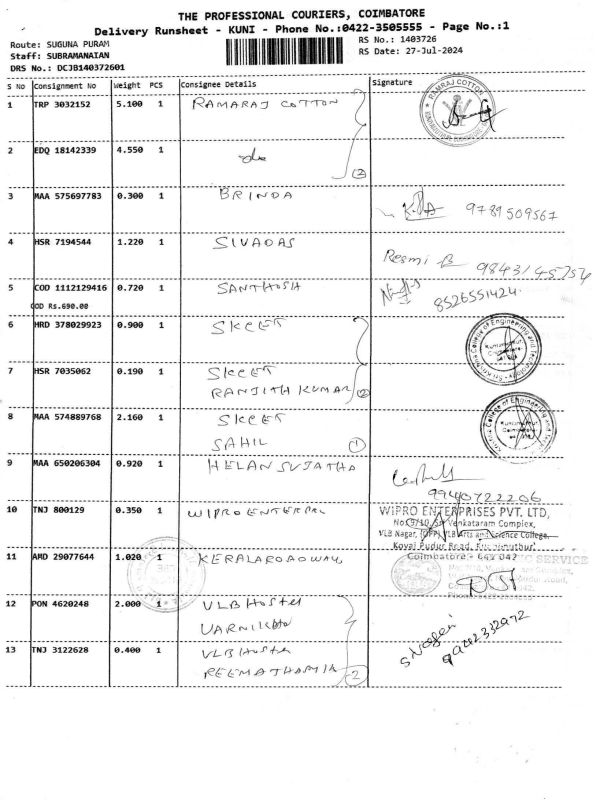 THE PROFESSIONAL COURIERS, COIMBATORE
Delivery Runsheet - KUNI - Phone No.:0422-3505555 - Page No.:1
Route: SUGUNA PURAM
RS No.: 1403726
Staff: SUBRAMANAIAN
RS Date: 27-Jul-2024
DRS No.: DCJB140372601
S No Consignment No Weight PCS Consignee Details Signature
1 TRP 3032152 5.100 1 RAMARAJ COTTON
RAMRAJ COTTON
2 EDQ 18142339 4.550 1 do
(2)
3 MAA 575697783 0.300 1 BRINDA
9789509567
4 HSR 7194544 1.220 1 SIVADAS
Resmi B 9843145754
5 COD 1112129416 0.720 1 SANTHOSH
8526551424
COD Rs.690.00
6 HRD 378029923 0.900 1 SKCET
7 HSR 7035062 0.190 1 SKCET
RANJITH KUMAR (2)
8 MAA 574889768 2.160 1 SKCET
SAHIL (1)
9 MAA 650206304 0.920 1 HELAN SUJATHA
9940722206
10 TNJ 800129 0.350 1 WIPRO ENTERPAL
WIPRO ENTERPRISES PVT. LTD,
No:9/10, Sri Venkataram Complex,
VLB Nagar, (OPP) VLB Arts and Science College,
Kovai Pudur Road,
Coimbatore - 641 042
11 AMD 29077644 1.020 1 KERALAROADWAY
12 PON 4620248 2.000 1 VLB Hostel
VARNIKA
13 TNJ 3122628 0.400 1 VLB Hostel
REEMATHAMIK (2)